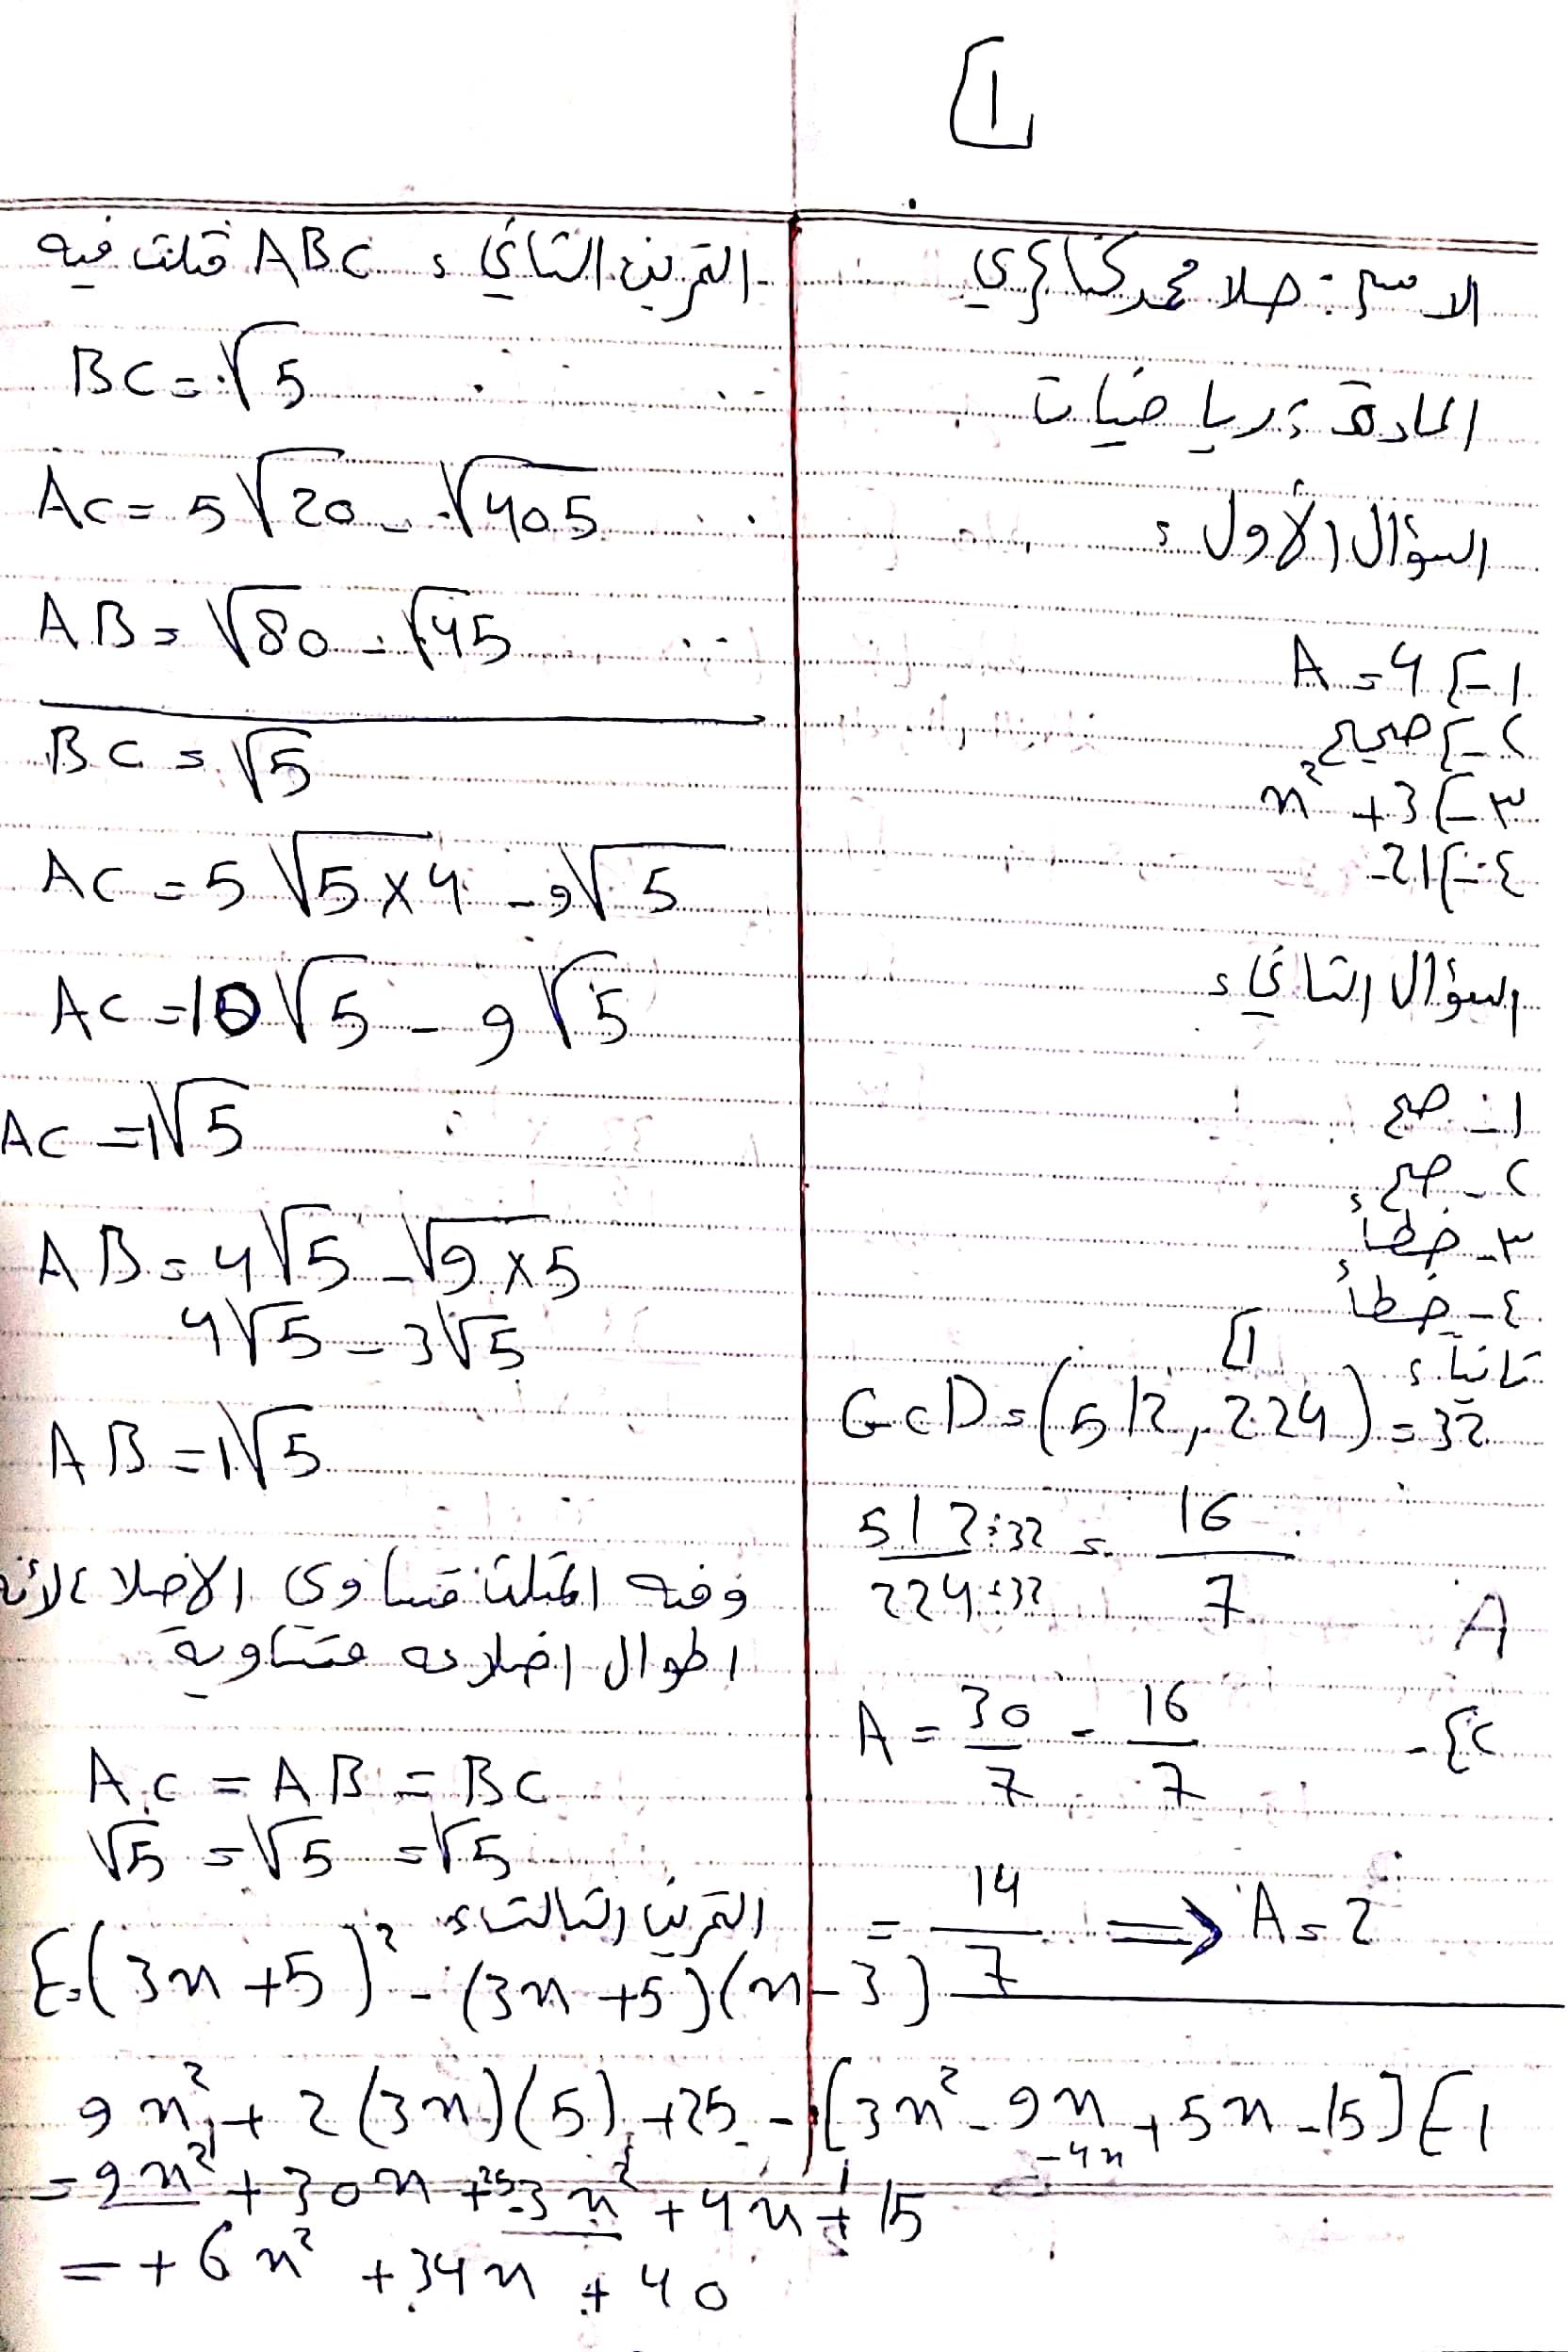 [1
الاسم: حلا محمد كناكري
المادة: رياضيات
السؤال الأول:
1-] A = 4
2-] صحيح
3-] x² + 3
4-] -21
السؤال الثاني:
1- صح
2- صح
3- خطأ
4- خطأ
ثانياً:
[1
GCD = (512, 224) = 32
512÷32 / 224÷32 = 16/7
A
2]- A = 30/7 - 16/7
= 14/7 ⟹ A = 2
التمرين الثاني: ABC مثلث فيه
BC = √5
AC = 5√20 - √405
AB = √80 - √45
BC = √5
AC = 5√5×4 - 9√5
AC = 10√5 - 9√5
AC = 1√5
AB = 4√5 - √9×5
4√5 - 3√5
AB = 1√5
ومنه المثلث متساوي الاضلاع لأنه
اطوال اضلاعه متساوية
AC = AB = BC
√5 = √5 = √5
التمرين الثالث:
E = (3x + 5)² - (3x + 5)(x - 3)
1] 9x² + 2(3x)(5) + 25 - [3x² - 9x + 5x - 15]
-4x
= 9x² + 30x + 25 - 3x² + 4x + 15
= + 6x² + 34x + 40